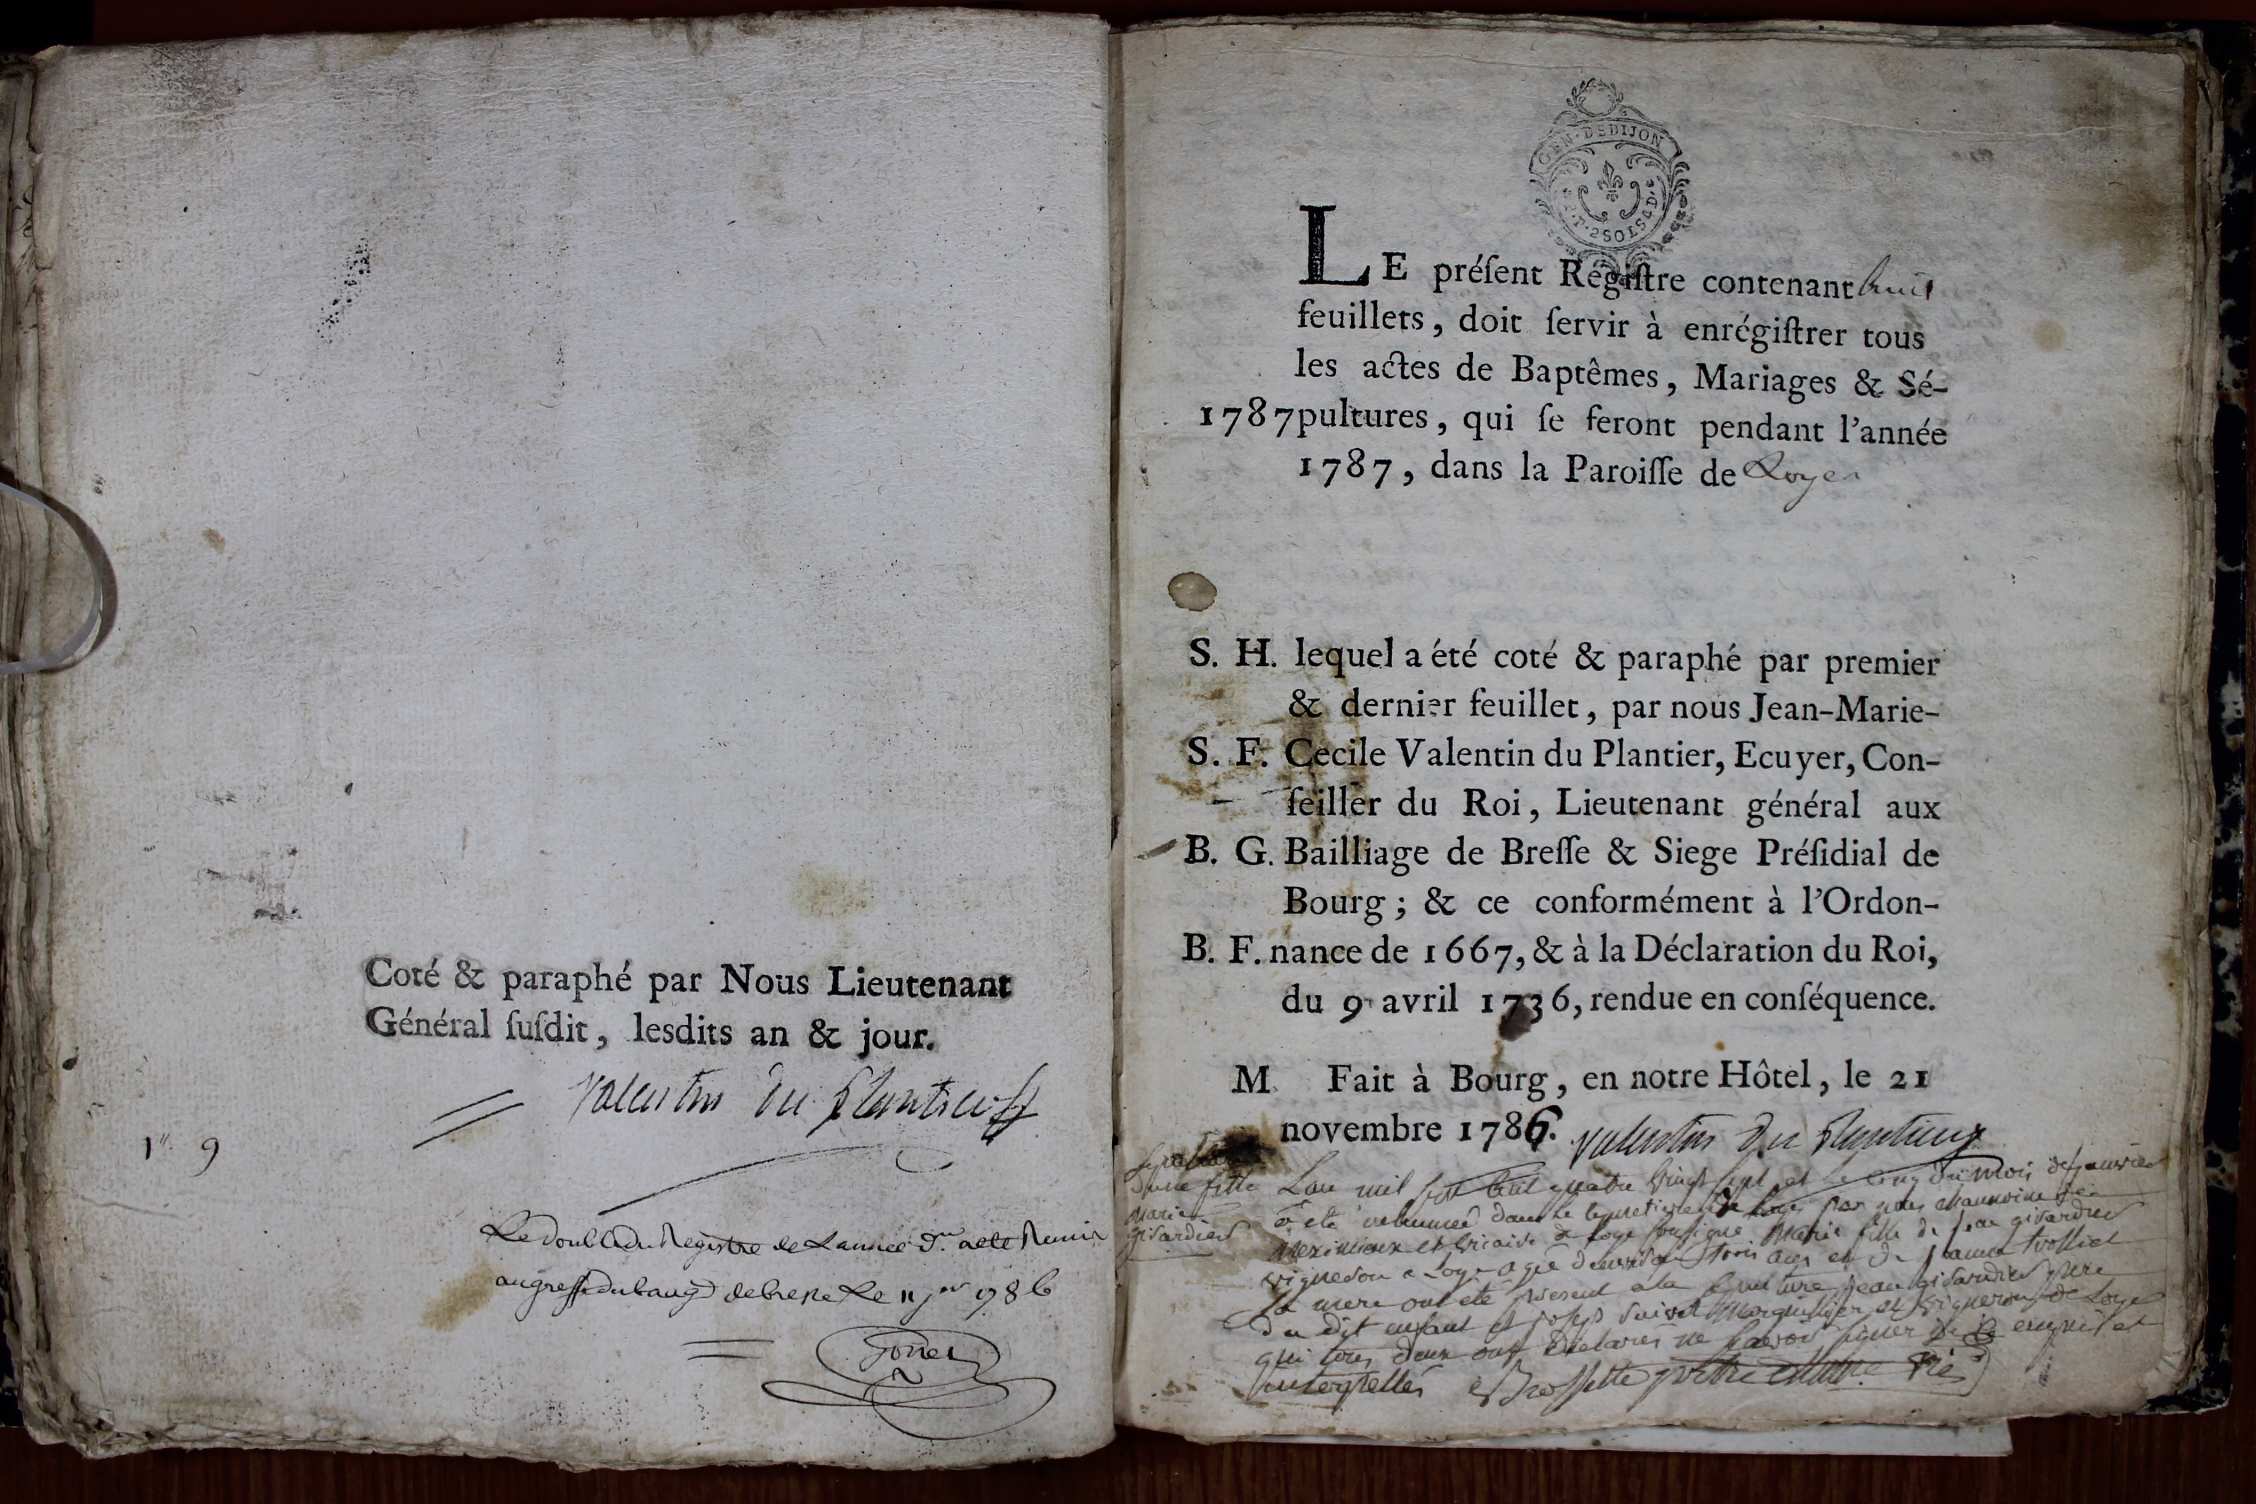 Coté & paraphé par Nous Lieutenant
Général ſuſdit, lesdits an & jour.
Valentin du Plantier
1er 9
Le double du Registre de Lannée d. a eté Remis
au greffe du de bresse Le 11 jer 1786
GEN·DE DIJON
2 SOLS 4 D.
LE préſent Régiſtre contenant huit
feuillets, doit ſervir à enrégiſtrer tous
les actes de Baptêmes, Mariages & Sé-
1787 pultures, qui ſe feront pendant l'année
1787, dans la Paroiſſe de Loyes
S. H. lequel a été coté & paraphé par premier
& dernier feuillet, par nous Jean-Marie-
S. F. Cecile Valentin du Plantier, Ecuyer, Con-
ſeiller du Roi, Lieutenant général aux
B. G. Bailliage de Breſſe & Siege Préſidial de
Bourg; & ce conformément à l'Ordon-
B. F. nance de 1667, & à la Déclaration du Roi,
du 9 avril 1736, rendue en conſéquence.
M Fait à Bourg, en notre Hôtel, le 21
novembre 1786. Valentin du Plantier
dune fille
Marie
Girardier
Lan mil sept cent quatre vingt sept et le cinq du mois de janvier
a eté inhumée dans le cimetiere de Loye par nous chanoine de
Meximieux et vicaire de Loye soussigné Marie fille de jean girardier
vigneron a Loye agée denviron trois ans et de jeanne trolliet
sa mere ont été present a la sepulture jean girardier pere
du dit enfant et joseph marguillier et vigneron de Loye
qui tous deux ont declarés ne savoir signer de ce enquis et
interpellés Brossette pretre